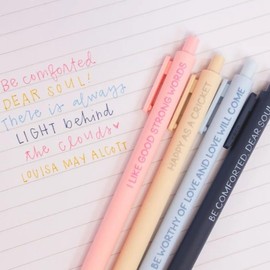 Be comforted,
DEAR SOUL!
There is always
LIGHT behind
the clouds
LOUISA MAY ALCOTT
I LIKE GOOD STRONG WORDS
HAPPY AS A CRICKET
BE WORTHY OF LOVE AND LOVE WILL COME
BE COMFORTED DEAR SOUL